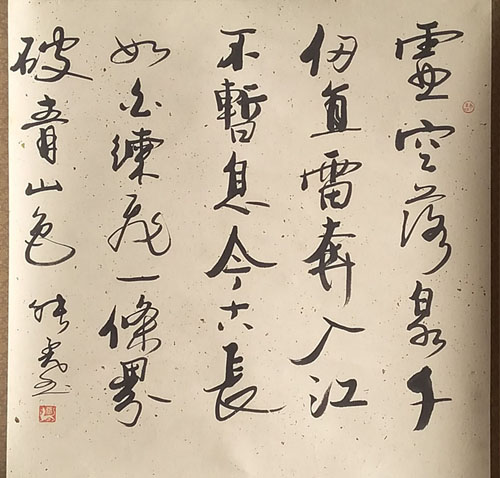 虛空落泉千
仞直雷奔入江
不暫息今古長
如白練飛一條界
破青山色